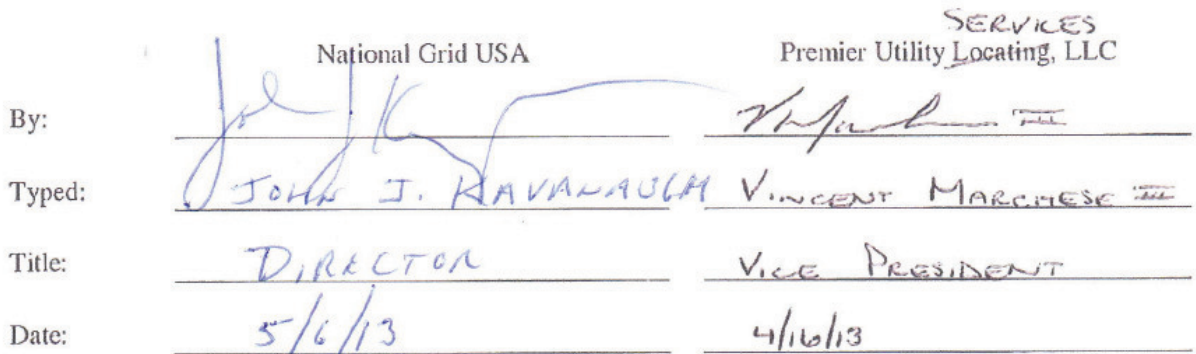 SERVICES
National Grid USA Premier Utility Locating, LLC
By: III
Typed: JOHN J. KAVANAUGH VINCENT MARCHESE III
Title: DIRECTOR VICE PRESIDENT
Date: 5/6/13 4/16/13